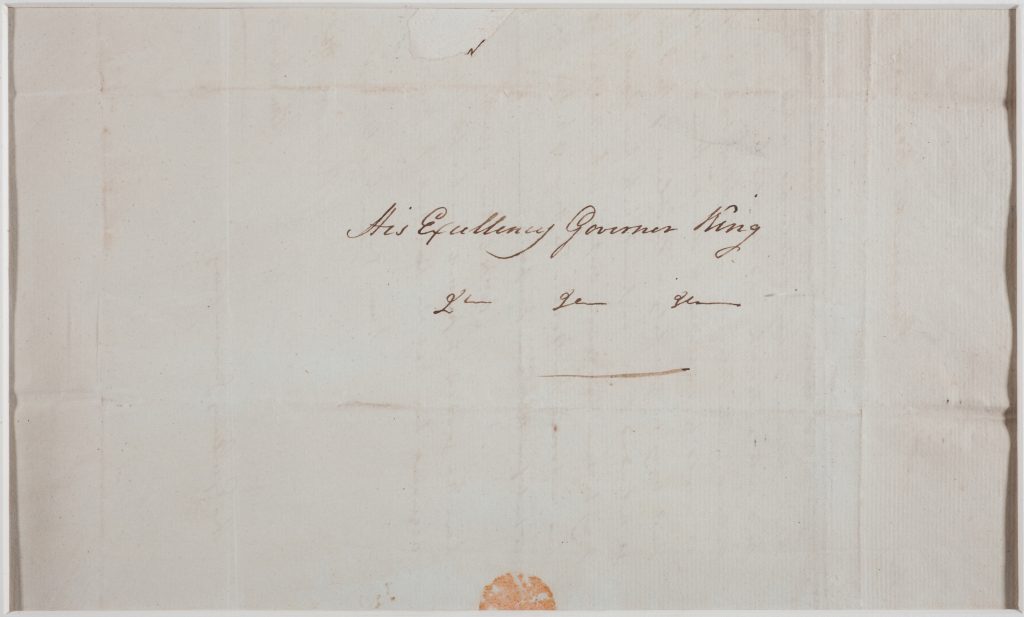 His Excellency Governor King
&c &c &c